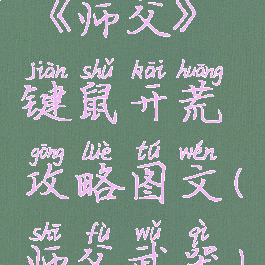 《师父》
jiàn shǔ kāi huāng
键鼠开荒
gōng lüè tú wén
攻略图文(
shī fù wǔ qì
师父武器)